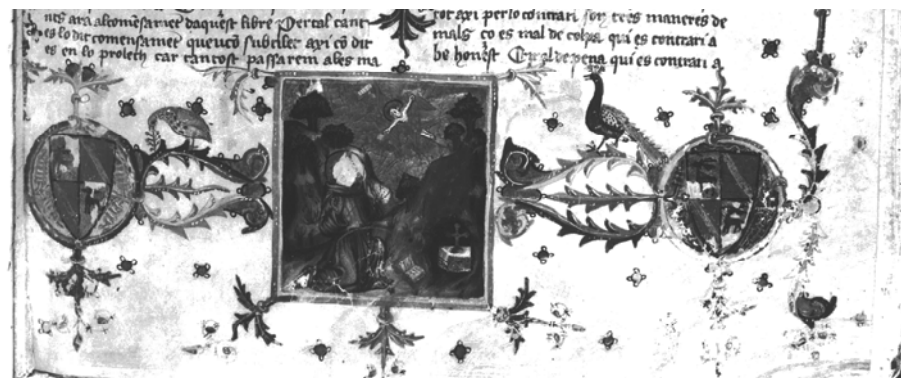 nts ara al comēsamēt daquest libre Per tal cant
es lo dit comensamēt que vcō subtiler axi cō dit
es en lo prolech car tantost passarem a les ma
tot axi per lo contrari son tres maneres de
mals ço es mal de colpa qui es contrari a
be honest E mal de pena qui es contrari a